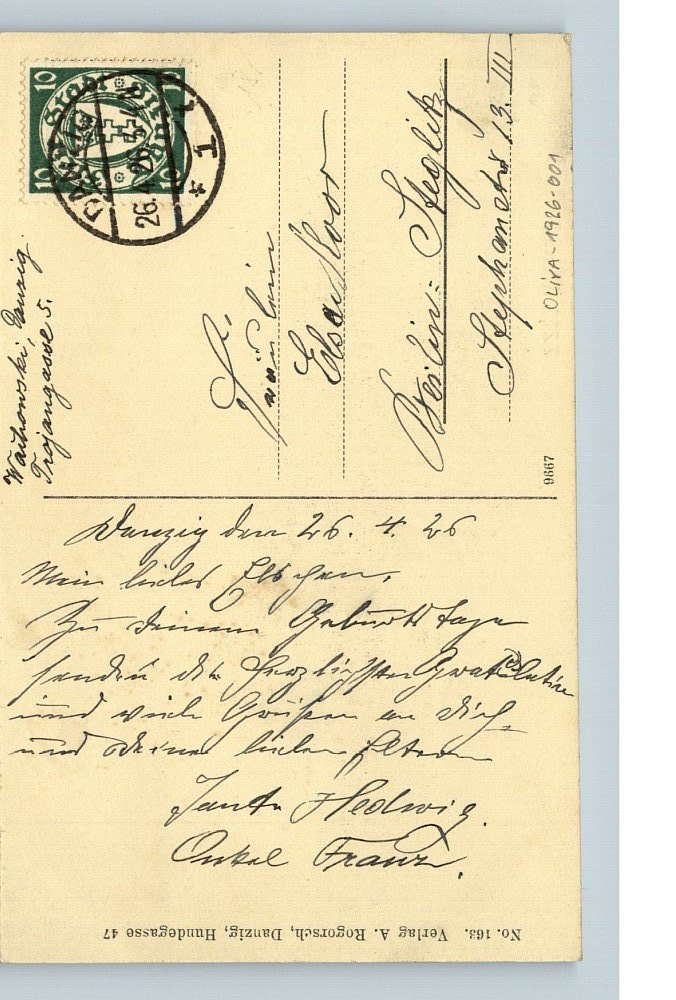 10 10
10 10
DANZIG
26.4.26
* 1
Waikowski, Danzig.
Trojangasse 5.
Fräulein
Elsa Moor
Berlin-Steglitz
Stephanstr 13. III
OLIVA-1926-001
9667
Danzig den 26. 4. 26
Mein liebes Elschen,
Zu deinem Geburtstage
senden die herzlichsten Gratulation
und viele Grüßen an Dich
und deine lieben Eltern
Tante Hedwig.
Onkel Franz.
No. 163. Verlag A. Rogorsch, Danzig, Hundegasse 47